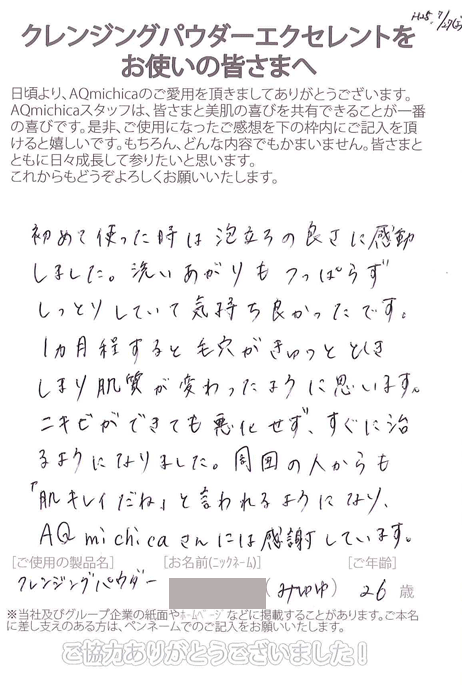 H25. 7/27(土)
クレンジングパウダーエクセレントを
お使いの皆さまへ
日頃より、AQmichicaのご愛用を頂きましてありがとうございます。
AQmichicaスタッフは、皆さまと美肌の喜びを共有できることが一番
の喜びです。是非、ご使用になったご感想を下の枠内にご記入を頂
けると嬉しいです。もちろん、どんな内容でもかまいません。皆さまと
ともに日々成長して参りたいと思います。
これからもどうぞよろしくお願いいたします。
初めて使った時は泡立ちの良さに感動
しました。洗いあがりもつっぱらず
しっとりしていて気持ち良かったです。
1カ月程すると毛穴がきゅっと
しまり肌質が変わったように思います。
ニキビができても悪化せず、すぐに治
るようになりました。周囲の人からも
「肌キレイだね」と言われるようになり、
AQmichicaさんには感謝しています。
[ご使用の製品名] [お名前(ニックネーム)] [ご年齢]
クレンジングパウダー (みゆゆ) 26歳
※当社及びグループ企業の紙面やホームページなどに掲載することがあります。ご本名
に差し支えのある方は、ペンネームでのご記入をお願いいたします。
ご協力ありがとうございました！